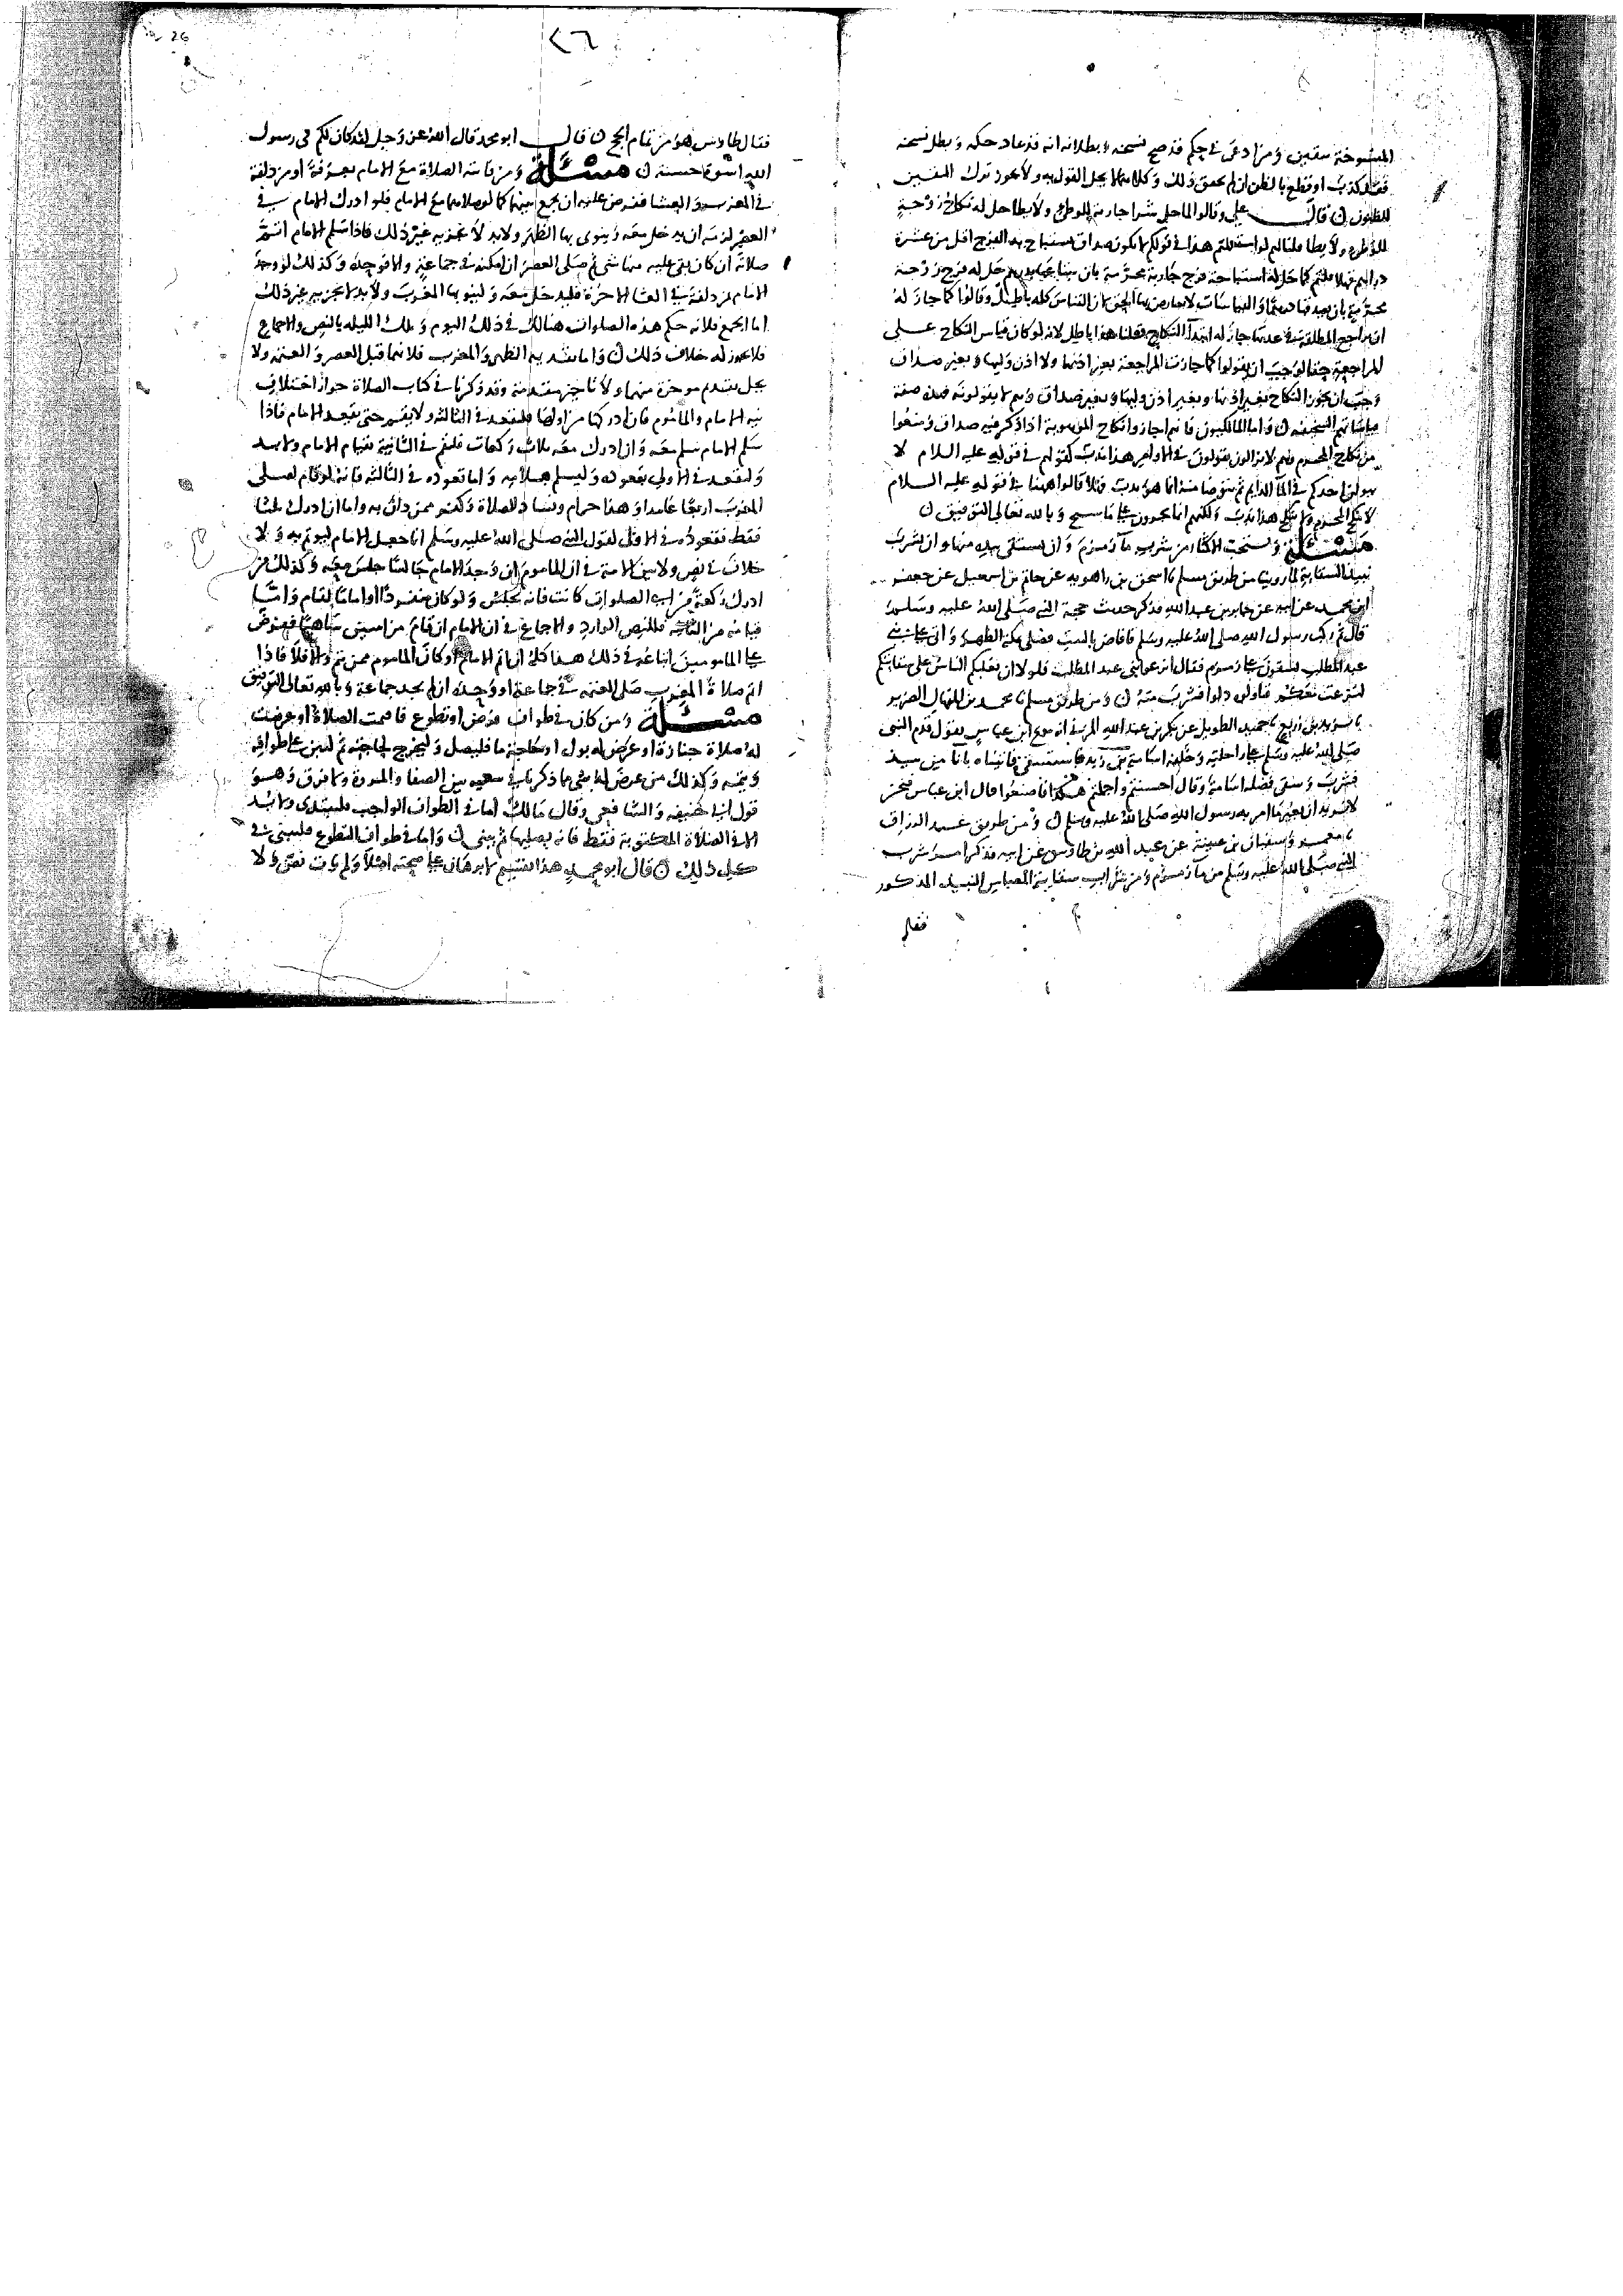 المنسوخة بيقين ومن ادعى في حكم قد صح نسخه وبطلانه انه قد عاد حكمه وبطل نسخه
فقد كذب او قطع بالظن ان لم يحقق ذلك وكلاهما لا يحل القول به ولا يجوز ترك اليقين
للظنون ن قال علي وقالوا لما حل شرا جارية للوطء ولا يطا حل له نكاح زوجة
للوطء ولا يطا فقلنا لهم لو استعملتم هذا في قولكم لا يكون صداق يستباح به الفرج اقل من عشرة
دراهم فهلا قلتم كما حل له استباحة فرج جارية محرمة بان يبتاعها بدرهم حل له فرج زوجة
محرمة بان يصدقها درهما والقياسات لا تعارض بها الحق لان القياس كله باطل ن وقالوا كما جاز له
ان يراجع المطلقة في عدتها جاز له ابتدا النكاح فقلنا هذا باطل لانه لو كان قياس النكاح على
المراجعة حقا لوجب ان يقولوا كما جازت المراجعة بغير اذنها ولا اذن وليها وبغير صداق
وجب ان يجوز النكاح بغير اذنها وبغير اذن وليها وبغير صداق وهم لا يقولونه فهذه صفة
قياساتهم السخيفة ن واما المالكيون فانهم اجازوا نكاح الموهوبة اذا ذكر فيه صداق ومنعوا
من نكاح المحرم وهم لا يزالون يقولون في الاوامر هذا ندب كقولهم في قوله عليه السلام لا
يبولن احدكم في الما الدايم ثم يتوضا منه انما هو ندب فهلا قالوا ههنا في قوله عليه السلام
لا ينكح المحرم ولا ينكح هذا ندب ولكنهم انما يجرون على ما سنح وبالله تعالى التوفيق ن
مسئلة ويستحب الاكثار من شرب ما زمزم وان يستقي بيده منها وان يشرب
نبيذ السقاية لما روينا من طريق مسلم نا اسحق بن راهويه عن حاتم بن اسمعيل عن جعفر
ابن محمد عن ابيه عن جابر بن عبد الله فذكر حديث حجة النبي صلى الله عليه وسلم
قال ثم ركب رسول الله صلى الله عليه وسلم فافاض بالبيت فصلى بمكة الظهر واتى على بني
عبد المطلب يسقون على زمزم فقال انزعوا بني عبد المطلب فلولا ان يغلبكم الناس على سقايتكم
لنزعت معكم فناولوه دلوا فشرب منه ن ومن طريق مسلم نا محمد بن المنهال الضرير
نا يزيد بن زريع نا حميد الطويل عن بكر بن عبد الله المزني انه سمع ابن عباس يقول قدم النبي
صلى الله عليه وسلم على راحلته وخلفه اسامة بن زيد فاستسقى فاتيناه بانا من نبيذ
فشرب وسقى فضله اسامة وقال احسنتم واجملتم هكذا فاصنعوا قال ابن عباس فنحن
لا نريد ان نغير ما امر به رسول الله صلى الله عليه وسلم ن ومن طريق عبد الرزاق
نا معمر وسفيان بن عيينة عن عبد الله بن طاوس عن ابيه فذكر امر شرب
النبي صلى الله عليه وسلم من ما زمزم ومن شراب سقاية العباس النبيذ المذكور
فقال
٢٦
26
فقال طاوس هو من تمام الحج ن قال ابو محمد قال الله عز وجل لقد كان لكم في رسول
الله اسوة حسنة ن مسئلة ومن فاتته الصلاة مع الامام بعرفة او مزدلفة
في المغرب والعشا ففرض عليه ان يجمع بينهما كما لو صلاهما مع الامام فلو ادرك الامام في
العصر لزمه ان يدخل معه وينوي بها الظهر ولابد لا يجزيه غير ذلك فاذا سلم الامام اتم
صلاته ان كان بقي عليه منها شي ثم صلى العصر ان امكنه في جماعة والا فوحده وكذلك لو وجد
الامام بمزدلفة في العشا الاخرة فليدخل معه ولينو بها المغرب ولابد لا يجزيه غير ذلك
اما الجمع فلانه حكم هذه الصلوات هنالك في ذلك اليوم وتلك الليلة بالنص والاجماع
فلا يجوز له خلاف ذلك ن واما تقديم الظهر والمغرب فلانهما قبل العصر والعتمة ولا
يحل تقديم موخرة منها ولا تاخير متقدمة وقد ذكرنا في كتاب الصلاة جواز اختلاف
نية الامام والماموم فان ادركها من اولها فليقعد في الثالثة ولا يقم حتى يقعد الامام فاذا
سلم الامام سلم معه وان ادرك معه ثلاث ركعات فليقم في الثانية بقيام الامام ولابد
وليقعد في الاولى بقعوده وليسلم بسلامه واما قعوده في الثالثة فانه لو قام لصلى
المغرب اربعا عامدا وهذا حرام وفساد للصلاة وكفر ممن دان به واما ان ادرك ثلثا
فقط فقعوده في الاولى لقول النبي صلى الله عليه وسلم انما جعل الامام ليوتم به ولا
خلاف في نص ولا بين الامة في ان الماموم ان وجد الامام جالسا جلس معه وكذلك من
ادرك ركعة من اي الصلوات كانت فانه يجلس ولو كان منفردا او اماما لقام واما
قيامه من الثانية فللنص الوارد والاجماع في ان الامام ان قام من اثنتين ساهيا ففرض
على المامومين اتباعه في ذلك هذا كله ان اتم الامام او كان الماموم ممن يتم والا فلا فاذا
اتم صلاة المغرب صلى العتمة في جماعة او وحده ان لم يجد جماعة وبالله تعالى التوفيق
مسئلة ومن كان في طواف فرض او تطوع فاقيمت الصلاة او عرضت
له صلاة جنازة او عرض له بول او حاجة ما فليصل وليخرج لحاجته ثم ليبن على طوافه
ويتمه وكذلك من عرض له شي مما ذكرنا في سعيه بين الصفا والمروة ولا فرق وهو
قول ابي حنيفة والشافعي وقال مالك اما في الطواف الواجب فليبتدي ولابد
الا في الصلاة المكتوبة فقط فانه يصليها ثم يبني ن واما في طواف التطوع فليبني في
كل ذلك ن قال ابو محمد هذا تقسيم لا برهان على صحته اصلا ولم يات نص ولا